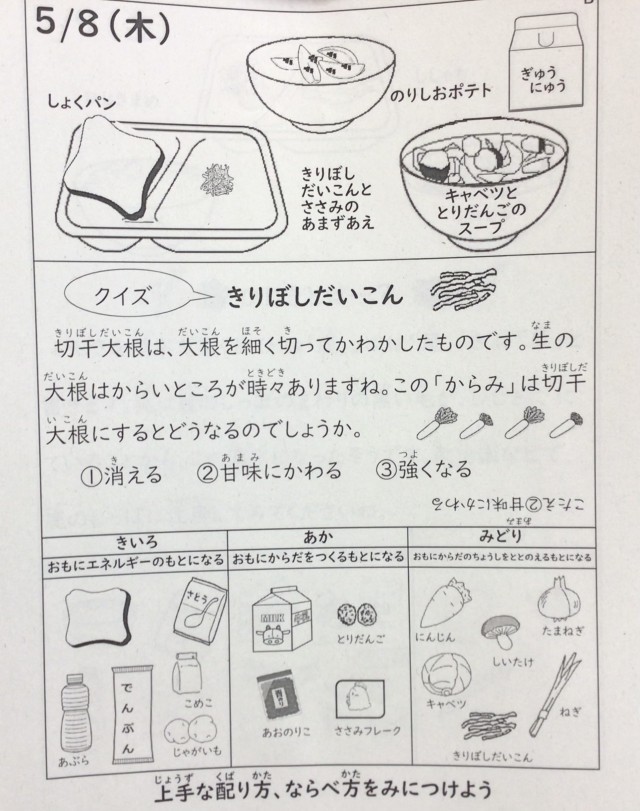 5/8(木)
しょくパン
のりしおポテト
ぎゅう
にゅう
きりぼし
だいこんと
ささみの
あまずあえ
キャベツと
とりだんごの
スープ
クイズ
きりぼしだいこん
切干大根は、大根を細く切ってかわかしたものです。生の
大根はからいところが時々ありますね。この「からみ」は切干
大根にするとどうなるのでしょうか。
①消える ②甘味にかわる ③強くなる
こたえ②甘味にかわる
きいろ
おもにエネルギーのもとになる
あか
おもにからだをつくるもとになる
みどり
おもにからだのちょうしをととのえるもとになる
さとう
こめこ
でんぷん
あぶら
じゃがいも
MILK
とりだんご
あおのりこ
ささみフレーク
にんじん
しいたけ
たまねぎ
キャベツ
ねぎ
きりぼしだいこん
上手な配り方、ならべ方をみにつけよう